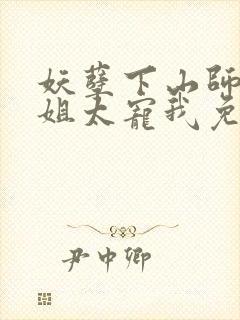 妖孽下山师
姐太宠我免
尹中卿